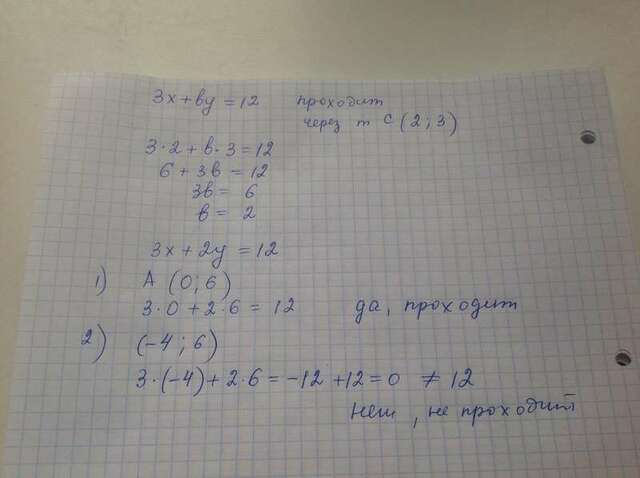 3x + by = 12 проходит
через т C (2; 3)
3·2 + b·3 = 12
6 + 3b = 12
3b = 6
b = 2
3x + 2y = 12
1) A (0; 6)
3·0 + 2·6 = 12 да, проходит
2) (-4; 6)
3·(-4) + 2·6 = -12 + 12 = 0 ≠ 12
Нет, не проходит